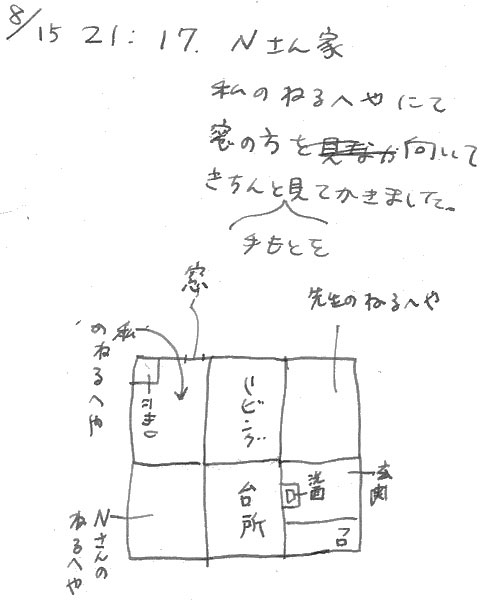 8/15 21:17. Nさん家
私のねるへやにて
窓の方を見ながら向いて
きちんと見てかきました。
手もとを
窓
先生のねるへや
私のねるへや
リビング
台所
洗面
玄関
フロ
Nさんのねるへや